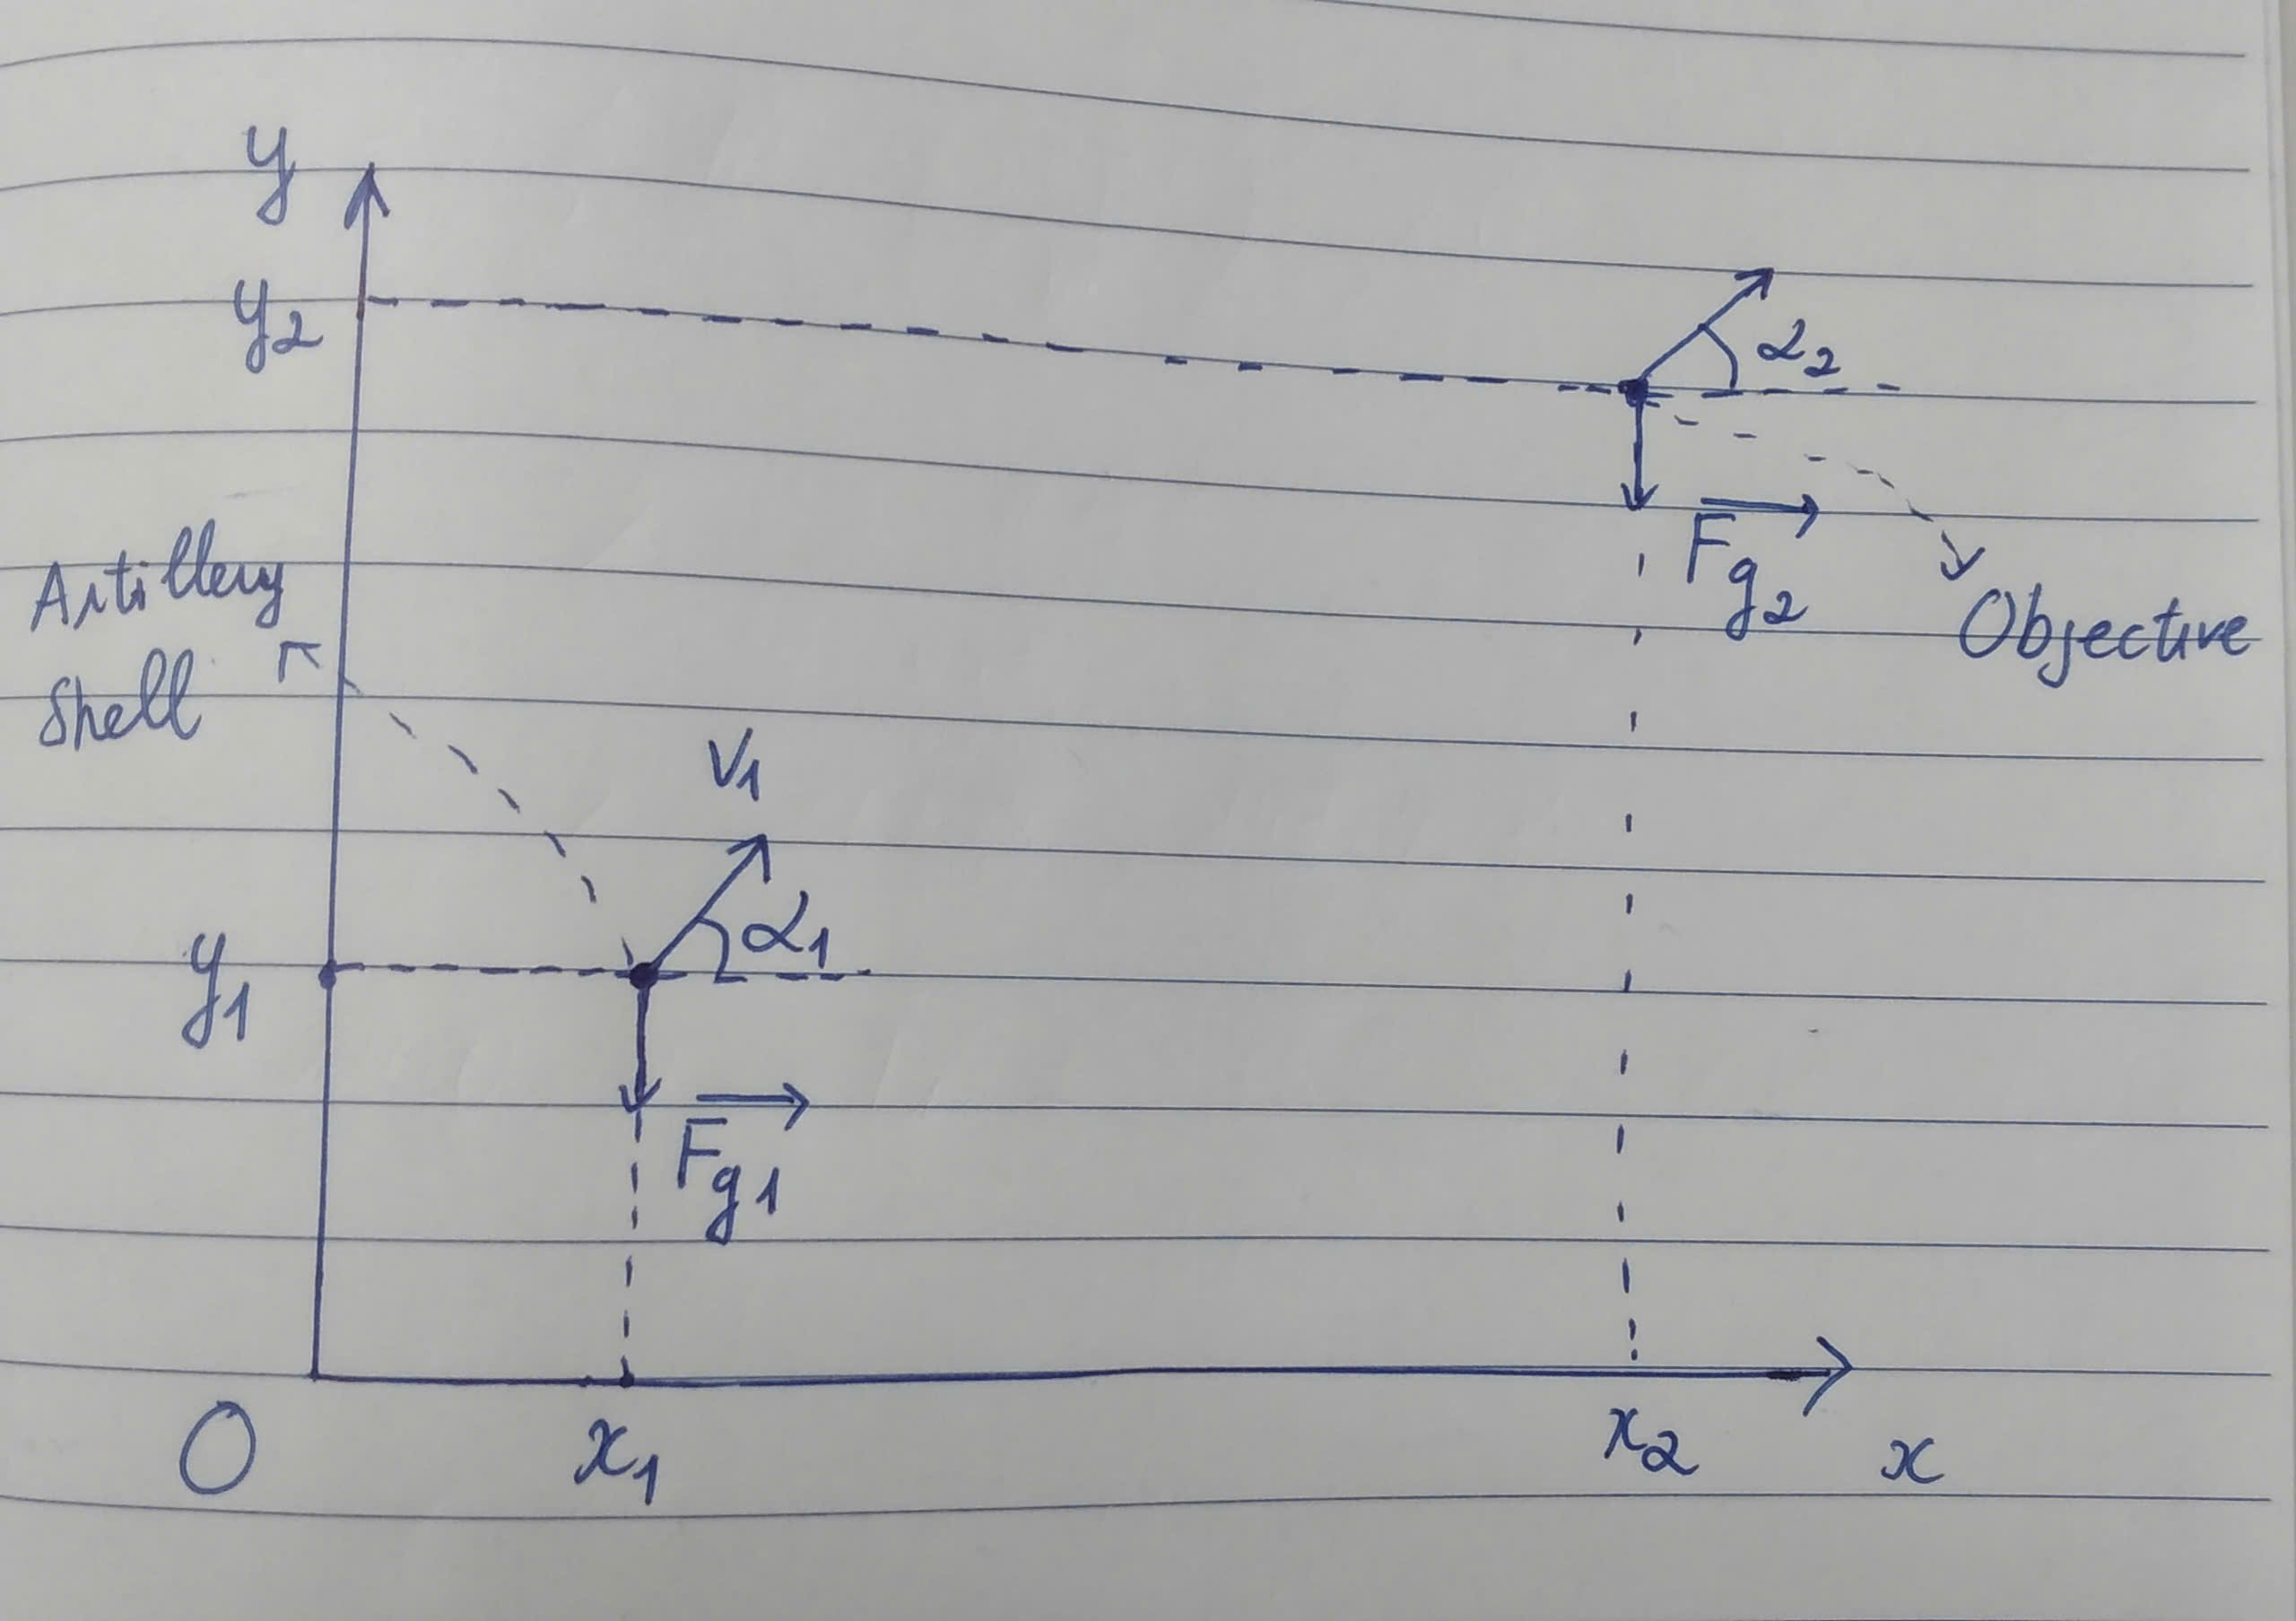 y
y₂
α₂
Fg₂
Objective
Artillery
Shell
V₁
α₁
y₁
Fg₁
O
x₁
x₂
x